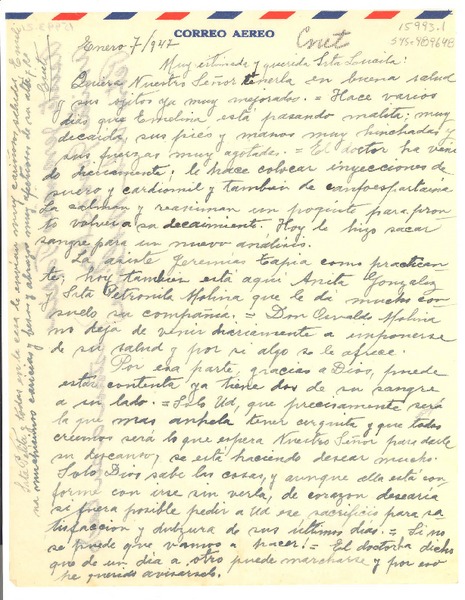 CORREO AEREO
15993.1
Enero 7/947
Muy estimada y querida Srta Lucila:
Quiera Nuestro Señor tenerla en buena salud
y sus ojitos ya muy mejorados. = Hace varios
días que Emelina está pasando malita; muy
decaída, sus pies y manos muy hinchadas y
sus fuerzas muy agotadas. = El doctor ha veni
do diariamente; le hace colocar inyecciones de
suero y cardiomil y también de canfoespartaina
la calman y reaniman un poquito para pron
to volver a su decaimiento. Hoy le hizo sacar
sangre para un nuevo análisis.
La asiste Jeremías Tapia como practican
te; hoy también está aquí Anita Gonzalez
y Srta Petronila Molina que le da mucho con
suelo su compañía. = Don Osvaldo Molina
no deja de venir diariamente a imponerse
de su salud y por si algo se le ofrece.
Por esa parte, gracias a Dios, puede
estar contenta ya tiene dos de su sangre
a su lado. = Solo Ud, que precisamente será
la que mas anhela tener cerquita y que todos
creemos será lo que espera Nuestro Señor para darle
su descanso, se está haciendo desear mucho.
Solo Dios sabe las cosas, y aunque ella está con
forme con irse sin verla, de corazon desearía
si fuera posible pedir a Ud ese sacrificio para sa
tisfaccion y dulzura de sus últimos días. = Si no
se puede que vamos a hacer! = El doctor ha dicho
que de un día a otro puede marcharse y por eso
he querido avisárselo.